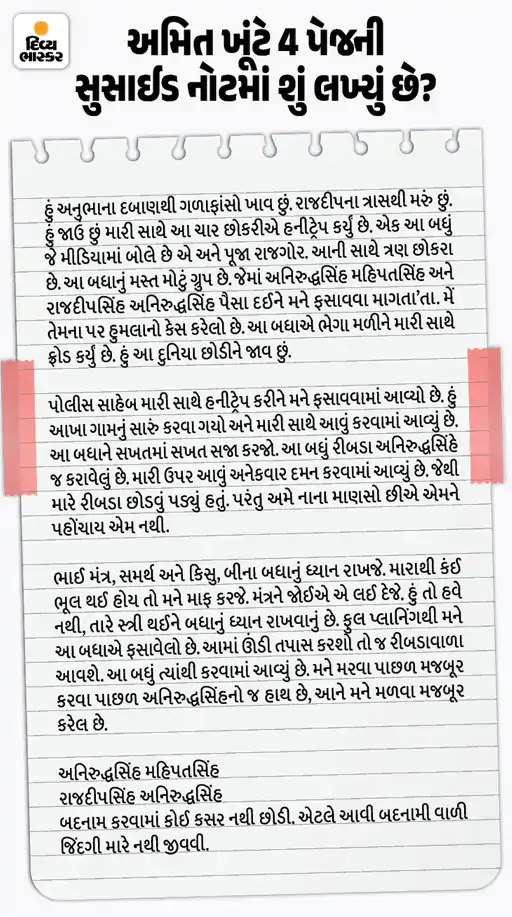 દિવ્ય
ભાસ્કર
અમિત ખૂંટે 4 પેજની
સુસાઈડ નોટમાં શું લખ્યું છે?
હું અનુભાના દબાણથી ગળાફાંસો ખાવ છું. રાજદીપના ત્રાસથી મરું છું.
હું જાઉં છું મારી સાથે આ ચાર છોકરીએ હનીટ્રેપ કર્યું છે. એક આ બધું
જે મીડિયામાં બોલે છે એ અને પૂજા રાજગોર. આની સાથે ત્રણ છોકરા
છે. આ બધાનું મસ્ત મોટું ગ્રુપ છે. જેમાં અનિરુદ્ધસિંહ મહિપતસિંહ અને
રાજદીપસિંહ અનિરુદ્ધસિંહ પૈસા દઈને મને ફસાવવા માગતા'તા. મેં
તેમના પર હુમલાનો કેસ કરેલો છે. આ બધાએ ભેગા મળીને મારી સાથે
ફ્રોડ કર્યું છે. હું આ દુનિયા છોડીને જાવ છું.
પોલીસ સાહેબ મારી સાથે હનીટ્રેપ કરીને મને ફસાવવામાં આવ્યો છે. હું
આખા ગામનું સારું કરવા ગયો અને મારી સાથે આવું કરવામાં આવ્યું છે.
આ બધાને સખતમાં સખત સજા કરજો. આ બધું રીબડા અનિરુદ્ધસિંહે
જ કરાવેલું છે. મારી ઉપર આવું અનેકવાર દમન કરવામાં આવ્યું છે. જેથી
મારે રીબડા છોડવું પડ્યું હતું. પરંતુ અમે નાના માણસો છીએ એમને
પહોંચાય એમ નથી.
ભાઈ મંત્ર, સમર્થ અને કિસુ, બીના બધાનું ધ્યાન રાખજે. મારાથી કંઈ
ભૂલ થઈ હોય તો મને માફ કરજે. મંત્રને જોઈએ એ લઈ દેજે. હું તો હવે
નથી, તારે સ્ત્રી થઈને બધાનું ધ્યાન રાખવાનું છે. ફુલ પ્લાનિંગથી મને
આ બધાએ ફસાવેલો છે. આમાં ઊંડી તપાસ કરશો તો જ રીબડાવાળા
આવશે. આ બધું ત્યાંથી કરવામાં આવ્યું છે. મને મરવા પાછળ મજબૂર
કરવા પાછળ અનિરુદ્ધસિંહનો જ હાથ છે, આને મને મળવા મજબૂર
કરેલ છે.
અનિરુદ્ધસિંહ મહિપતસિંહ
રાજદીપસિંહ અનિરુદ્ધસિંહ
બદનામ કરવામાં કોઈ કસર નથી છોડી. એટલે આવી બદનામી વાળી
જિંદગી મારે નથી જીવવી.